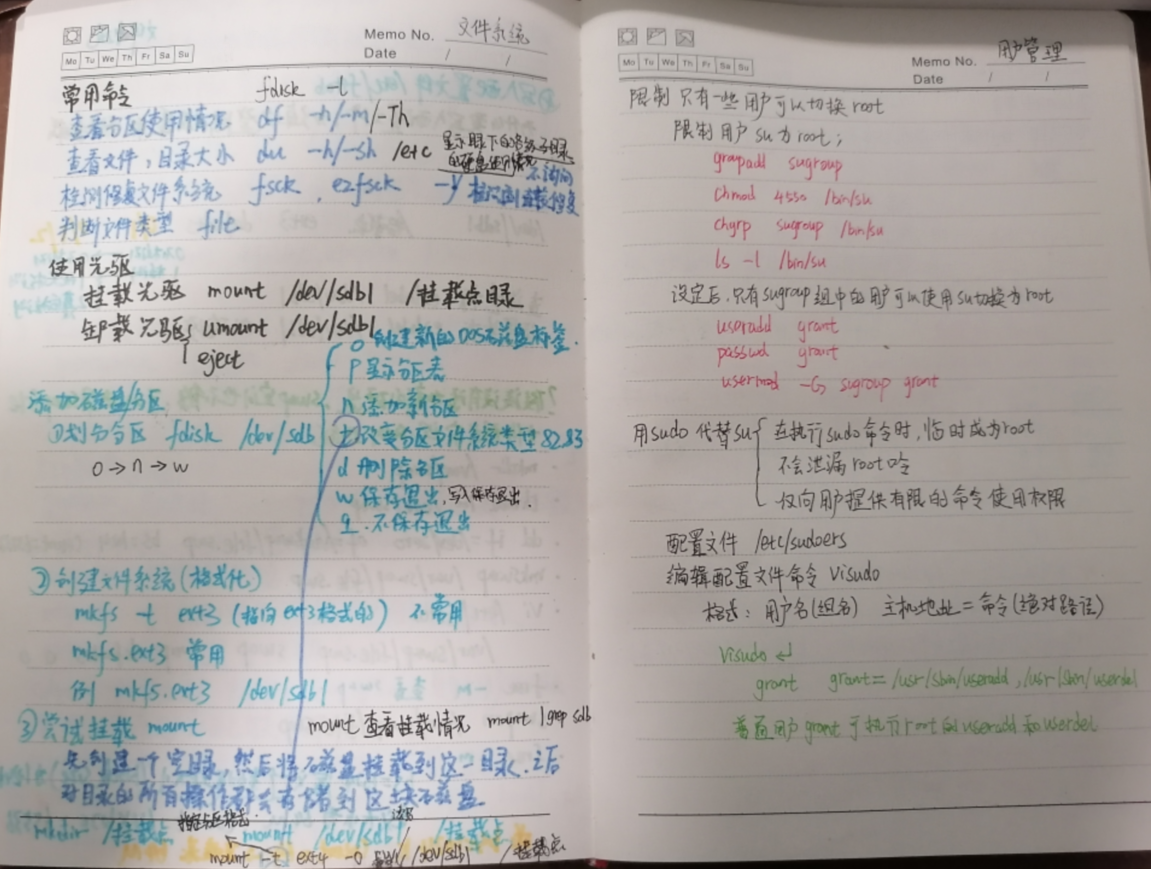 Memo No. 文件系统
Mo Tu We Th Fr Sa Su
Date / /
常用命令 fdisk -l
查看分区使用情况 df -h/-m/-Th
查看文件，目录大小 du -h/-sh /etc
显示眼下的各级子目录
的硬盘使用情况
不询问
检测修复文件系统 fsck , e2fsck -y 检测到连载修复
判断文件类型 file
使用光驱
挂载光驱 mount /dev/sdb1 /挂载点目录
卸载光驱 umount /dev/sdb1
eject
o 创建新的DOS磁盘标签.
p 显示分区表
n 添加新分区
t 改变分区文件系统类型 82.83
d 删除分区
w 保存退出, 写入保存退出.
q. 不保存退出
添加磁盘/分区
①划分分区 fdisk /dev/sdb
o→n→w
②创建文件系统(格式化)
mkfs -t ext3 (指向ext3格式的) 不常用
mkfs.ext3 常用
例 mkfs.ext3 /dev/sdb1
③尝试挂载 mount
mount 查看挂载情况 mount |grep sdb
先创建一个空目录, 然后将磁盘挂载到这一目录. 之后
对目录的所有操作都会存储到这块磁盘
mkdir /挂载点 mount /dev/sdb1 /挂载点
mount -t ext4 -o /dev/sdb1 /挂载点
Memo No. 用户管理
Mo Tu We Th Fr Sa Su
Date / /
限制只有一些用户可以切换root
限制用户su为root;
groupadd sugroup
chmod 4550 /bin/su
chgrp sugroup /bin/su
ls -l /bin/su
设定后, 只有sugroup组中的用户可以使用su切换为root
useradd grant
passwd grant
usermod -G sugroup grant
用sudo代替su
在执行sudo命令时, 临时成为root
不会泄漏root口令
仅向用户提供有限的命令使用权限
配置文件 /etc/sudoers
编辑配置文件命令 visudo
格式: 用户名(组名) 主机地址=命令(绝对路径)
visudo ↵
grant grant= /usr/sbin/useradd ,/usr/sbin/userdel
普通用户grant可执行root的useradd和userdel